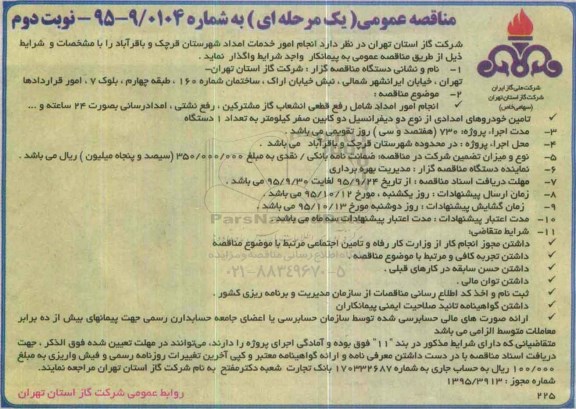 مناقصه عمومی( یک مرحله ای ) به شماره ۹/۰۱۰۴-۹۵ - نوبت دوم
شرکت ملی گاز ایران
شرکت گاز استان تهران
(سهامی خاص)
شرکت گاز استان تهران در نظر دارد انجام امور خدمات امداد شهرستان قرچک و باقرآباد را با مشخصات و شرایط
ذیل از طریق مناقصه عمومی به پیمانکار واجد شرایط واگذار نماید.
۱- نام و نشانی دستگاه مناقصه گزار : شرکت گاز استان تهران-
تهران ، خیابان ایرانشهر شمالی ، نبش خیابان اراک ، ساختمان شماره ۱۶۰ ، طبقه چهارم ، بلوک ۷ ، امور قراردادها
۲- موضوع مناقصه :
✓ انجام امور امداد شامل رفع قطعی انشعاب گاز مشترکین ، رفع نشتی ، امدادرسانی بصورت ۲۴ ساعته و ...
✓ تامین خودروهای امدادی از نوع دو دیفرانسیل دو کابین صفر کیلومتر به تعداد ۱ دستگاه
۳- مدت اجرا، پروژه: ۷۳۰ (هفتصد و سی ) روز تقویمی می باشد .
۴- محل اجرا، پروژه : در محدوده شهرستان قرچک و باقرآباد می باشد .
۵- نوع و میزان تضمین شرکت در مناقصه: ضمانت نامه بانکی / نقدی به مبلغ ۳۵۰/۰۰۰/۰۰۰ (سیصد و پنجاه میلیون ) ریال می باشد .
۶- نماینده دستگاه مناقصه گزار : مدیریت بهره برداری
۷- مهلت دریافت اسناد مناقصه : از تاریخ ۹۵/۹/۲۴ لغایت ۹۵/۹/۳۰ می باشد .
۸- زمان ارسال پیشنهادات : روز یکشنبه ، مورخ ۹۵/۱۰/۱۲ می باشد .
۹- زمان گشایش پیشنهادات : روز دوشنبه مورخ ۹۵/۱۰/۱۳ می باشد
۱۰- مدت اعتبار پیشنهادات : مدت اعتبار پیشنهادات سه ماه می باشد
۱۱- شرایط متقاضی:
✓ داشتن مجوز انجام کار از وزارت کار رفاه و تامین اجتماعی مرتبط با موضوع مناقصه
✓ داشتن تجربه کافی و مرتبط با موضوع مناقصه
✓ داشتن حسن سابقه در کارهای قبلی .
✓ داشتن توان مالی .
✓ ثبت نام و اخذ کد اطلاع رسانی مناقصات از سازمان مدیریت و برنامه ریزی کشور .
✓ داشتن گواهینامه تائید صلاحیت ایمنی پیمانکاران
✓ ارائه صورت های مالی حسابرسی شده توسط سازمان حسابرسی یا اعضای جامعه حسابدارن رسمی جهت پیمانهای بیش از ده برابر
معاملات متوسط الزامی می باشد
متقاضیانی که دارای شرایط مذکور در بند "۱۱" فوق بوده و آمادگی اجرای پروژه را دارند، می‌توانند در مهلت تعیین شده فوق الذکر ، جهت
دریافت اسناد مناقصه با در دست داشتن معرفی نامه و ارائه گواهینامه معتبر و کپی آخرین تغییرات روزنامه رسمی و فیش واریزی به مبلغ
۱۰۰/۰۰۰ ریال به حساب جاری به شماره ۱۷۰۳۳۲۶۸۷ بانک تجارت شعبه دکترمفتح به نام شرکت گاز استان تهران مراجعه نمایند.
شماره مجوز : ۱۳۹۵/۳۹۱۳
۲۲۵
روابط عمومی شرکت گاز استان تهران
ParsNam
۰۲۱-۸۸۳۴۹۶۷۰-۵